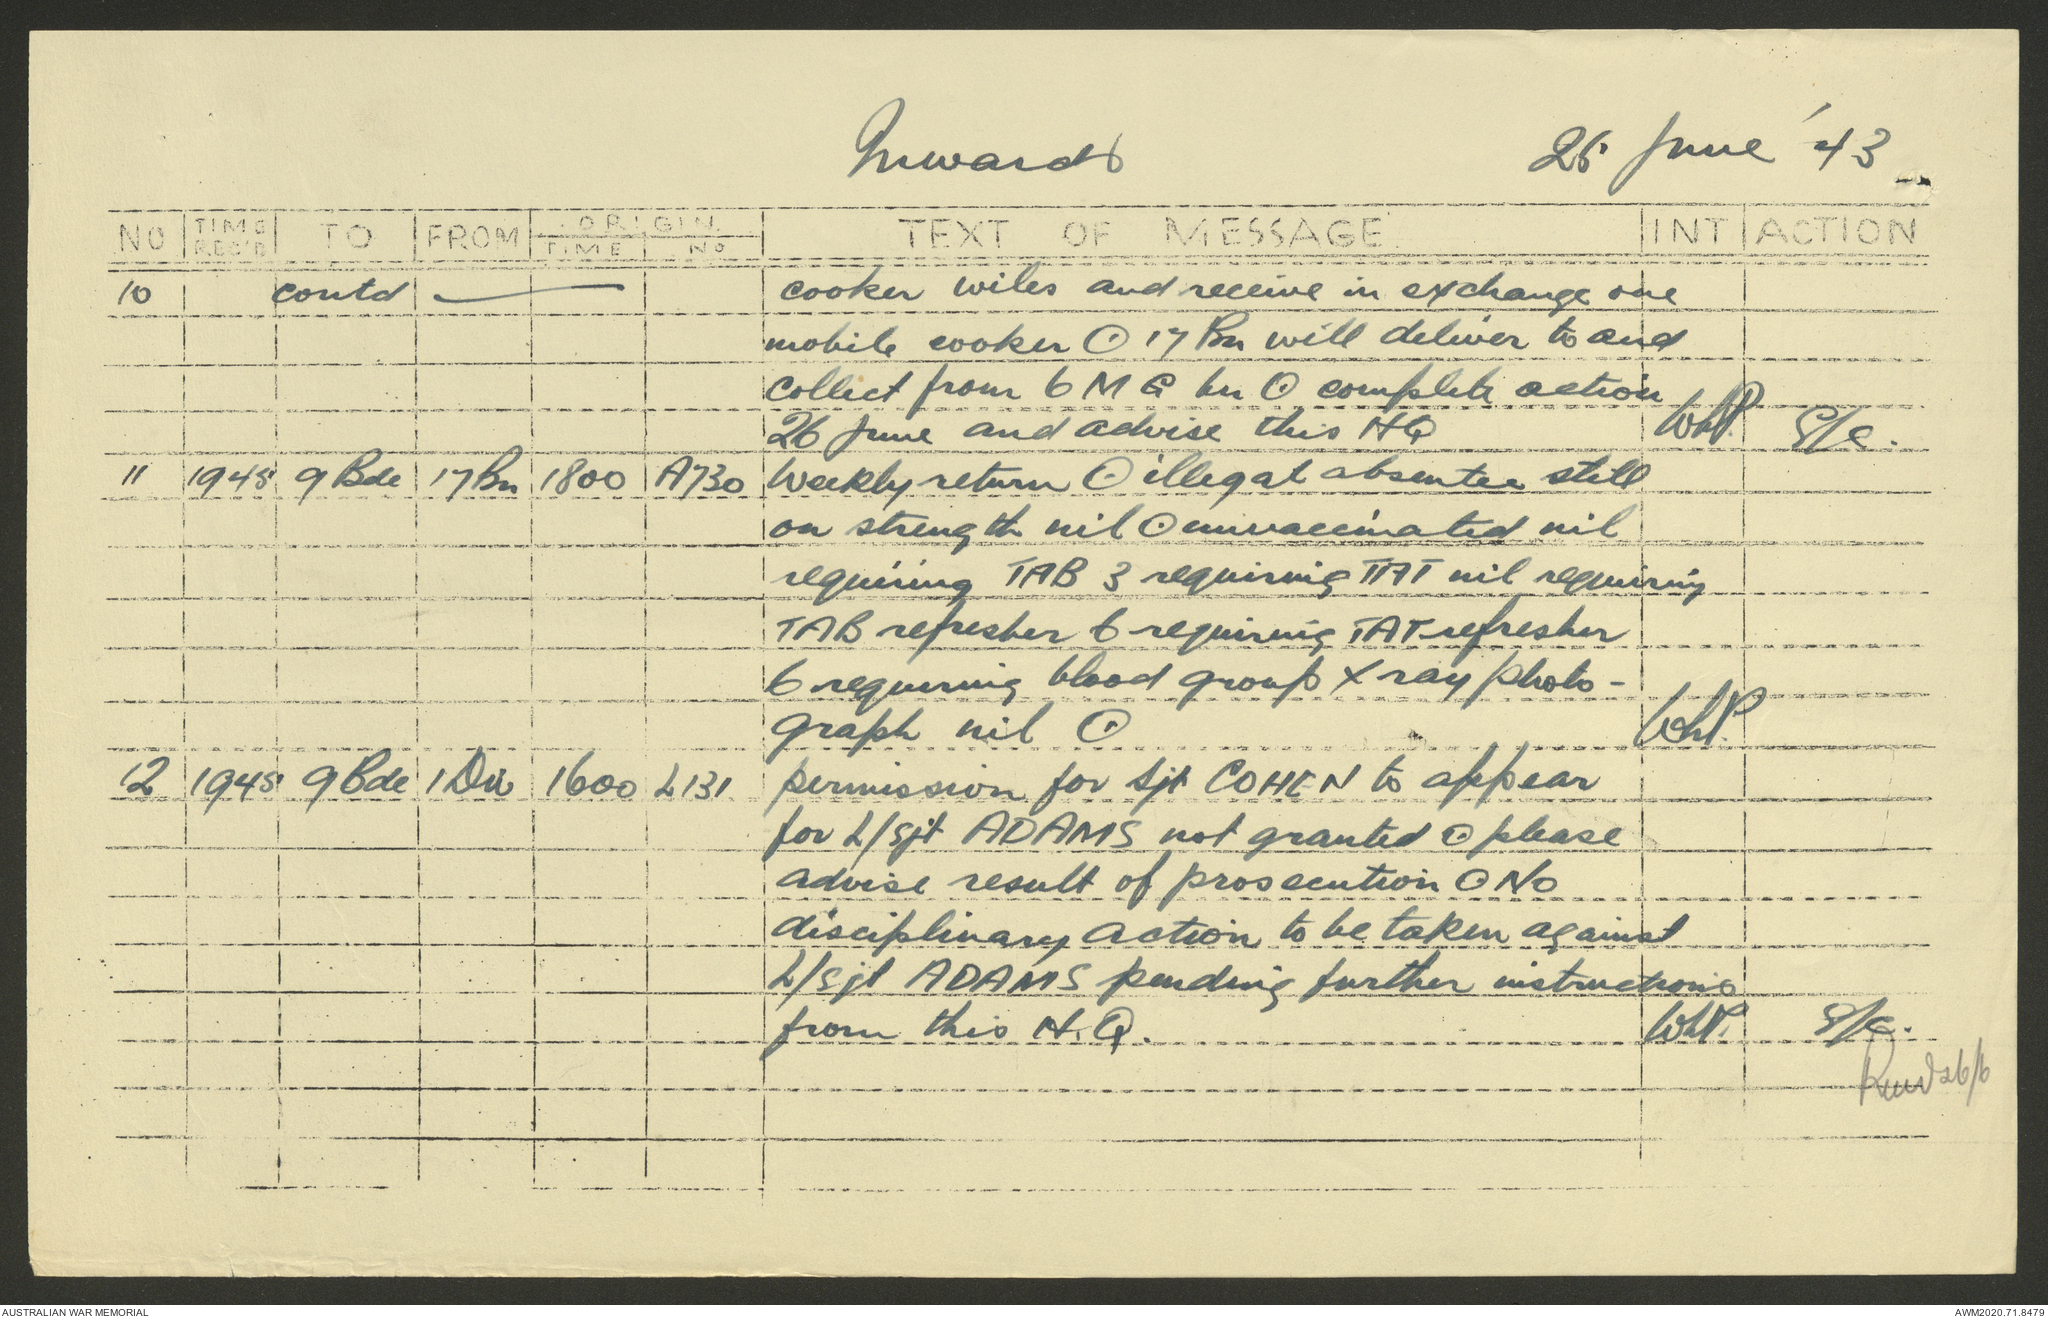 Inwards 25 June '43
NO TIME REC'D TO FROM ORIGIN TIME NO TEXT OF MESSAGE INT ACTION
10 contd — cooker wiles and receive in exchange one
mobile cooker ⊙ 17 Bn will deliver to and
collect from 6 MG bn ⊙ complete action
26 June and advise this HQ WhP. S/c.
11 1945 9 Bde 17 Bn 1800 A730 Weekly return ⊙ illegal absentee still
on strength nil ⊙ unvaccinated nil
requiring TAB 3 requiring TAT nil requiring
TAB refresher 6 requiring TAT refresher
6 requiring blood group X ray photo-
graph nil ⊙ WhP.
12 1945 9 Bde 1 Div 1600 L131 permission for Sjt COHEN to appear
for L/Sjt ADAMS not granted ⊙ please
advise result of prosecution ⊙ No
disciplinary action to be taken against
L/Sjt ADAMS pending further instructions
from this H.Q. WhP. S/c.
26/6
AUSTRALIAN WAR MEMORIAL AWM2020.71.8479